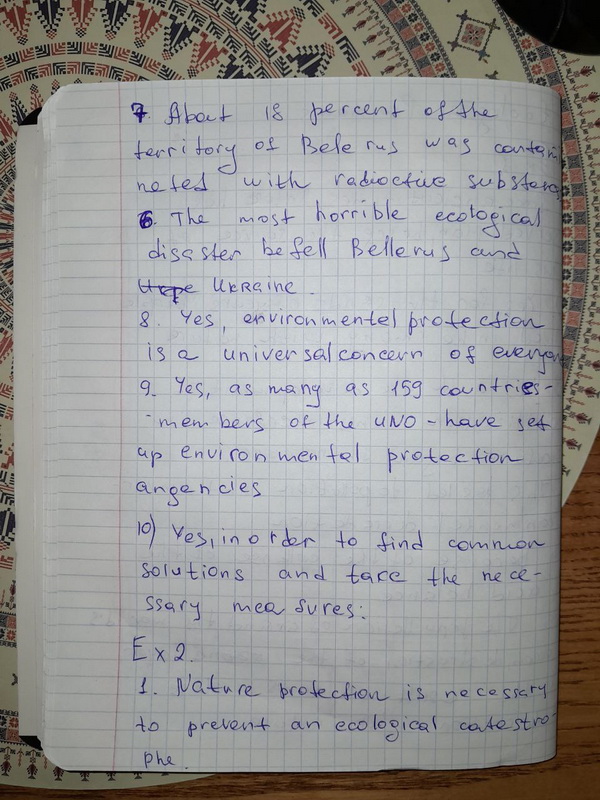 7. About 18 percent of the
territory of Belerus was contami
neted with radioctive substanc
6. The most horrible ecological
disaster befell Bellerus and
Ukraine.
8. Yes, environmentel protection
is a universal concern of everyon
9. Yes, as many as 159 countries-
members of the UNO - have set
up environmentel protection
angencies
10) Yes, in order to find common
solutions and take the nece-
ssary measures.
Ex 2.
1. Nature protection is necessary
to prevent an ecological catestro
phe.